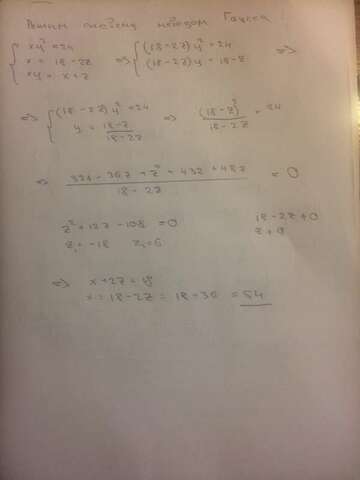 Решим систему методом Гаусса
{ xy² = 24
x = 18 - 2z
xy = x + z ⇒ { (18 - 2z) y² = 24
(18 - 2z) y = 18 - z ⇒
⇒ { (18 - 2z) y² = 24
y = (18 - z)/(18 - 2z) ⇒ (18 - z)²/(18 - 2z) = 24
⇒ (324 - 36z + z² + 432 + 48z)/(18 - 2z) = 0
z² + 12z - 108 = 0 18 - 2z ≠ 0
z₁ = -18 z₂ = 6 z ≠ 9
⇒ x + 2z = 18
x = 18 - 2z = 18 - 36 = 54